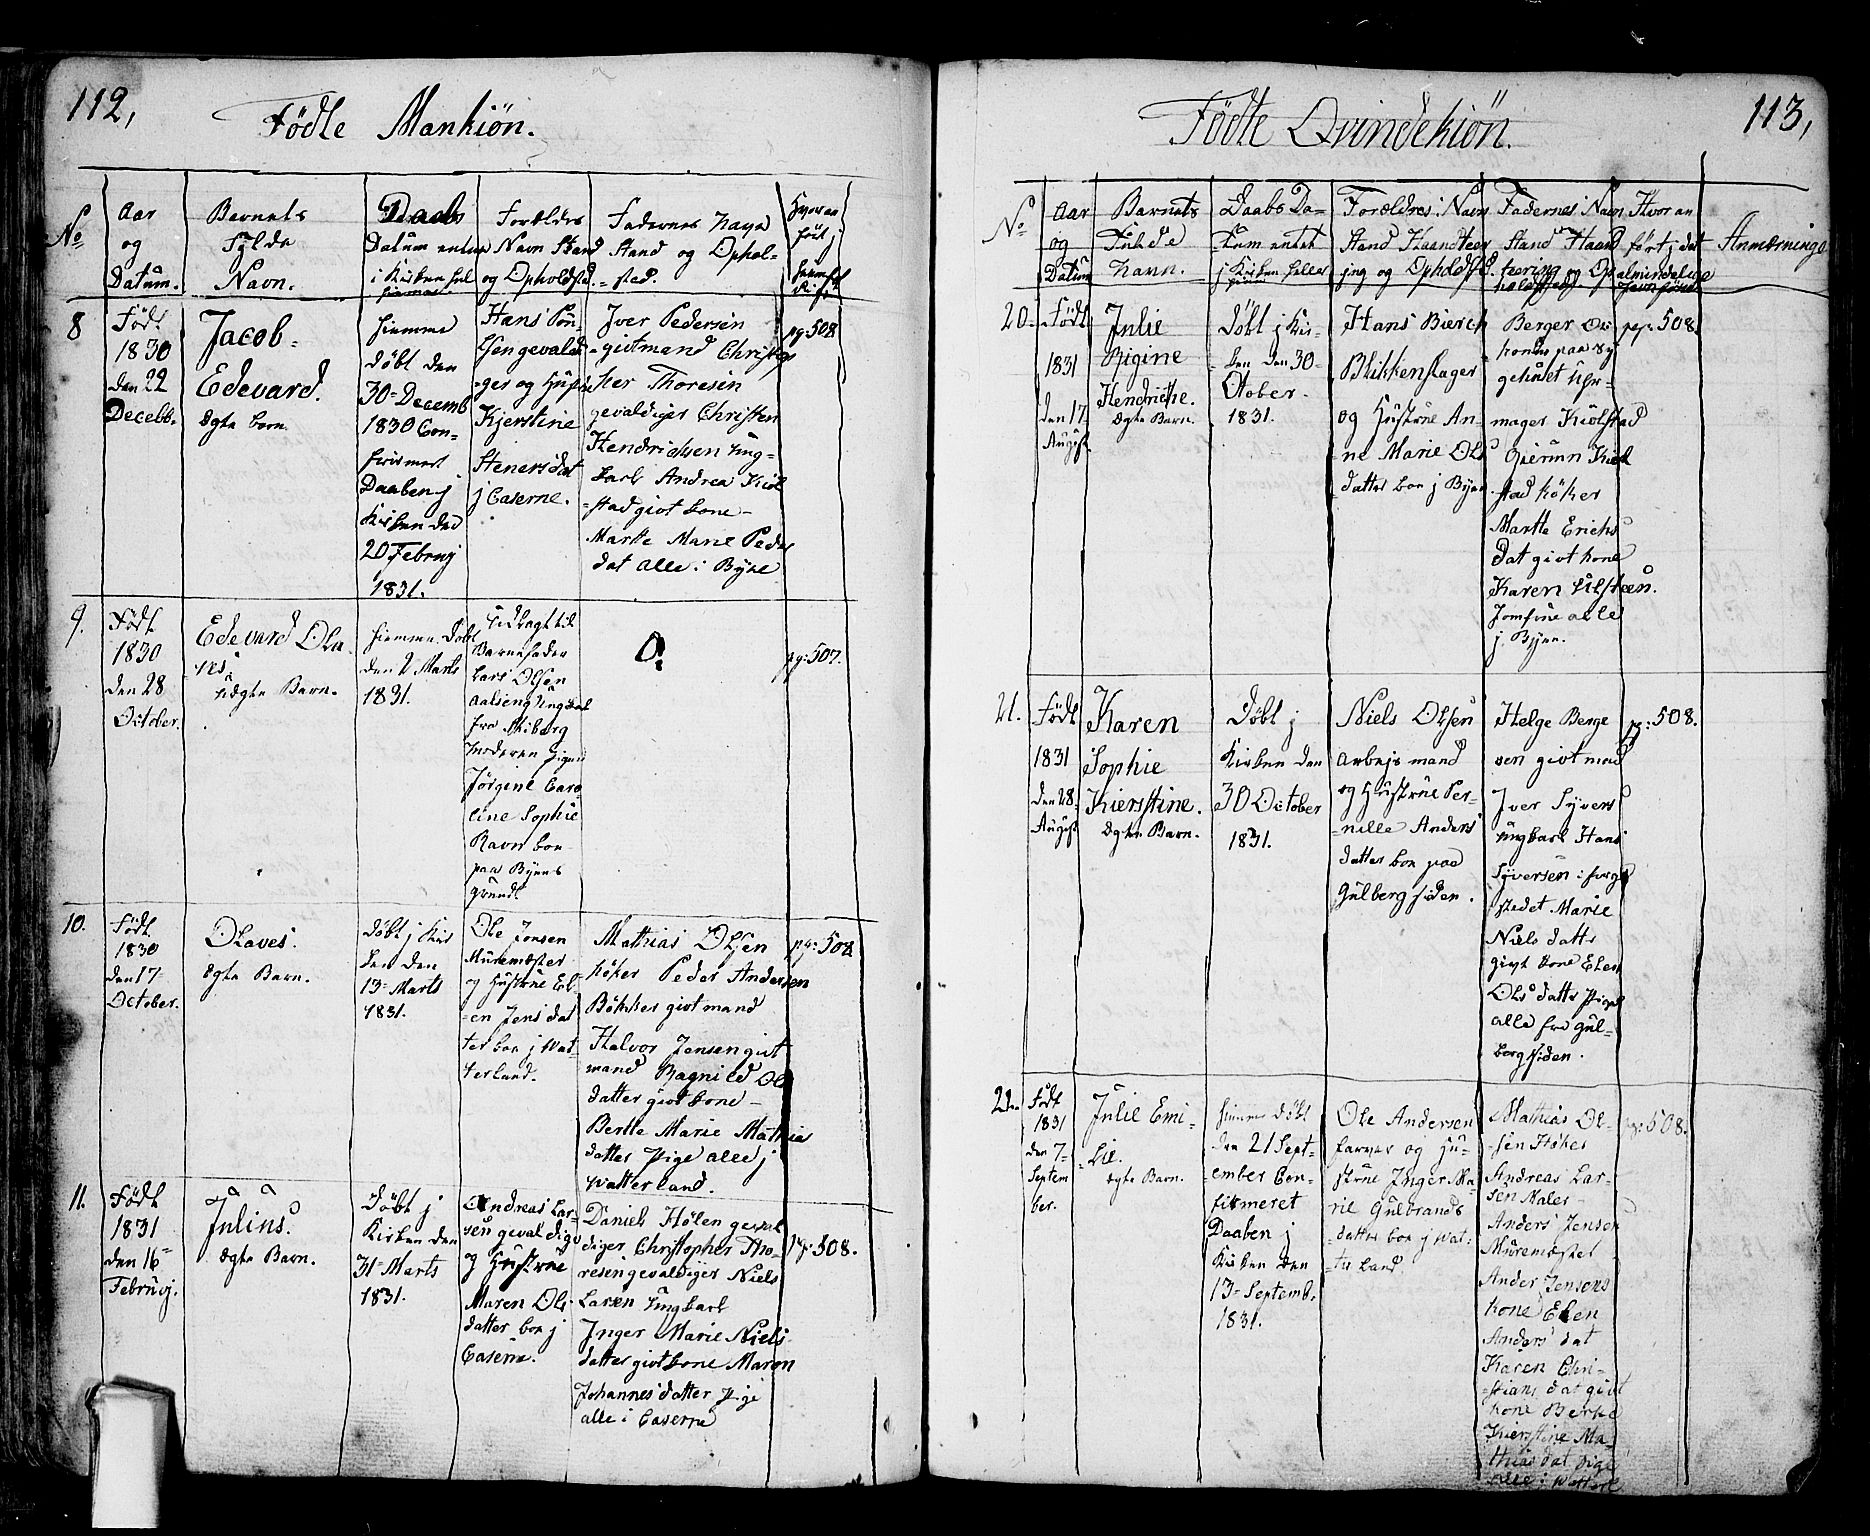 112,
Födte Mankiön.
No
Aar
og
Datum.
Barnets
Fulde
Navn.
Daabs
Datum enten
i Kirken hel
hiemme
Forældres
Navn Stand
og Opholdsted
Fadernes Navn
Stand og Ophol-
-sted.
Hvor an
ført j
8
Født
1830
den 22
Decebb.
Jacob-
Edevard.
Ægte barn
hiemme
döbt den
30= Decemb
1830 Con-
firmert
Daaben j
Kirken ded
20 Februj
1831.
Hans Pon-
lsen gevaldi
-ger og Hustr
Kjerstine
Stenersdat
j Caserne.
Iver Pedersen
-givtmand Christop
her Thoresen
gevaldiger Christen
Hendrichsen Ung-
karl Andrea Kiöl
=stad givt kone-
Marte Marie Peders
dat alle i Byen
pg 508
9.
Født
1830
den 28
October.
Edevard Ola
ves
uægte Barn.
hiemme Döbt
den 2 Marts
1831.
Udlagt til
Barnefader
Lars Olsen
Aalseng Ungkal
fra Skiberg
Moderen Pigen
Jörgine Caro-
line Sophie
Ravn boe
paa Byens
grund.
O.
pg: 507.
10.
Født
1830
den 17
October.
Olaves.
Ægte Barn.
Döbt j Kir
ken den
13= Marts
1831.
Ole Jonsen
Muremester
og Hustrue El-
-en Jens dat
ter boe j Wat-
terland.
Mathias Olsen
höker Peder Andersen
Bökker givt mand
Halvor Jensen givt
mand Ragnild Ols
datter givt kone-
Berthe Marie Mathias
datter Pige alle j
Watterland.
pg: 508
11.
Født
1831
den 16=
Februj.
Julius.
Ægte Barn.
Döbt j
Kirken den
31= Marts
1831.
Andreas Lar-
sen gevaldige
og Hustrue
Maren Ols
datter boe j
Caserne.
Daniel Hölen geval
diger Christopher Tho-
resen gevaldiger Niels
Larsen Ungkarl
Inger Marie Niels
datter givt kone Maren
Johannes datter Pige
alle i Caserne
pg: 508.
113,
Födte Qvindekiön.
No
Aar
og
Datum
Barnets
Fulde
Navn.
Daabs Da-
tum entet
j Kirken heller
Forældres Navn
Stand Haandteer
ing og Opholdst.
Fadernes Navn
Stand Haand
teering og Op
holdsted.
Hvor an
ført j det
almindelige
Anmærninge
20.
Født
1831
den 17
August
Julie
Rigine
Hendriche.
Ægte Barn.
Döbt j Kir-
ken den 30-
Otober.
1831.
Hans Bierch
Blikkenslager
og Hustrue An-
ne Marie Ols
datter boe j Byen
Berger Ols
kones paa sy
gehuset
mager Kiölstad
Kiöl
stad höker
Marthe Erichs
dat givt kone
Karen Ulsteen.
Jomfrue alle
j Byen.
pg: 508.
21.
Født
1831
den 28
August
Karen
Sophie
Kierstine.
Ægte Barn.
Döbt j
Kirken den
30 October
1831.
Niels Olsen
arbejs mand
og Hustrue Per-
=nille Anders
datter boe paa
Gulberg siden.
Helge Berge
sen givt mad
Iver Syvers
ungkarl Hans
Syversen i forge
stedet Marie
Niels datter
givt kone Elen
Ols datter Pigal
alle fra Gul-
berg siden.
pg: 508.
22.
Født
1831
den 7-
Septem
ber.
Julie Emi-
-Lie.
Ægte Barn.
hiemme döbt
den 21 Sept-
-ember Con-
firmeret
Daaben j
Kirken den
13= Septemb.
1831.
Ole Andersen
farver og Hu-
strue Inger Ma-
rie Gulbrands
=datter boe j Wat-
-ter land.
Mathias Ol-
-sen Höker
Andreas Lar-
sen Maler-
Anders Jensen
Muremester
Ander Jensens
kone Elen
Anders dat
Karen Chri-
-stians dat givt
kone Berthe
Kierstine Ma-
thias dat pige
alle i Watterl
pg: 508.